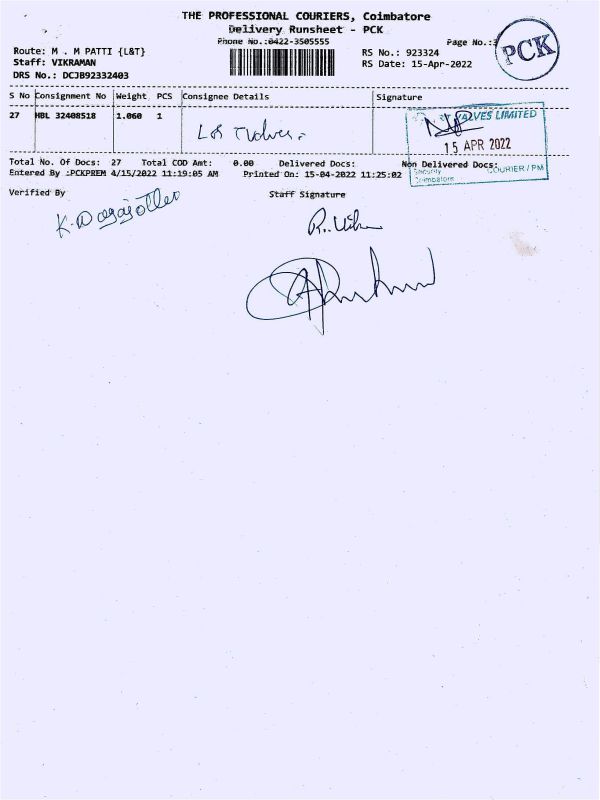 THE PROFESSIONAL COURIERS, Coimbatore
Delivery Runsheet - PCK
Phone No.:0422-3505555
Page No.:
PCK
Route: M . M PATTI {L&T}
RS No.: 923324
Staff: VIKRAMAN
RS Date: 15-Apr-2022
DRS No.: DCJB92332403
S No Consignment No Weight PCS Consignee Details Signature
27 HBL 32408518 1.060 1
VALVES LIMITED
15 APR 2022
Security COURIER / PM
Coimbatore
Total No. Of Docs: 27 Total COD Amt: 0.00 Delivered Docs: Non Delivered Docs:
Entered By :PCKPREM 4/15/2022 11:19:05 AM Printed On: 15-04-2022 11:25:02
Verified By Staff Signature